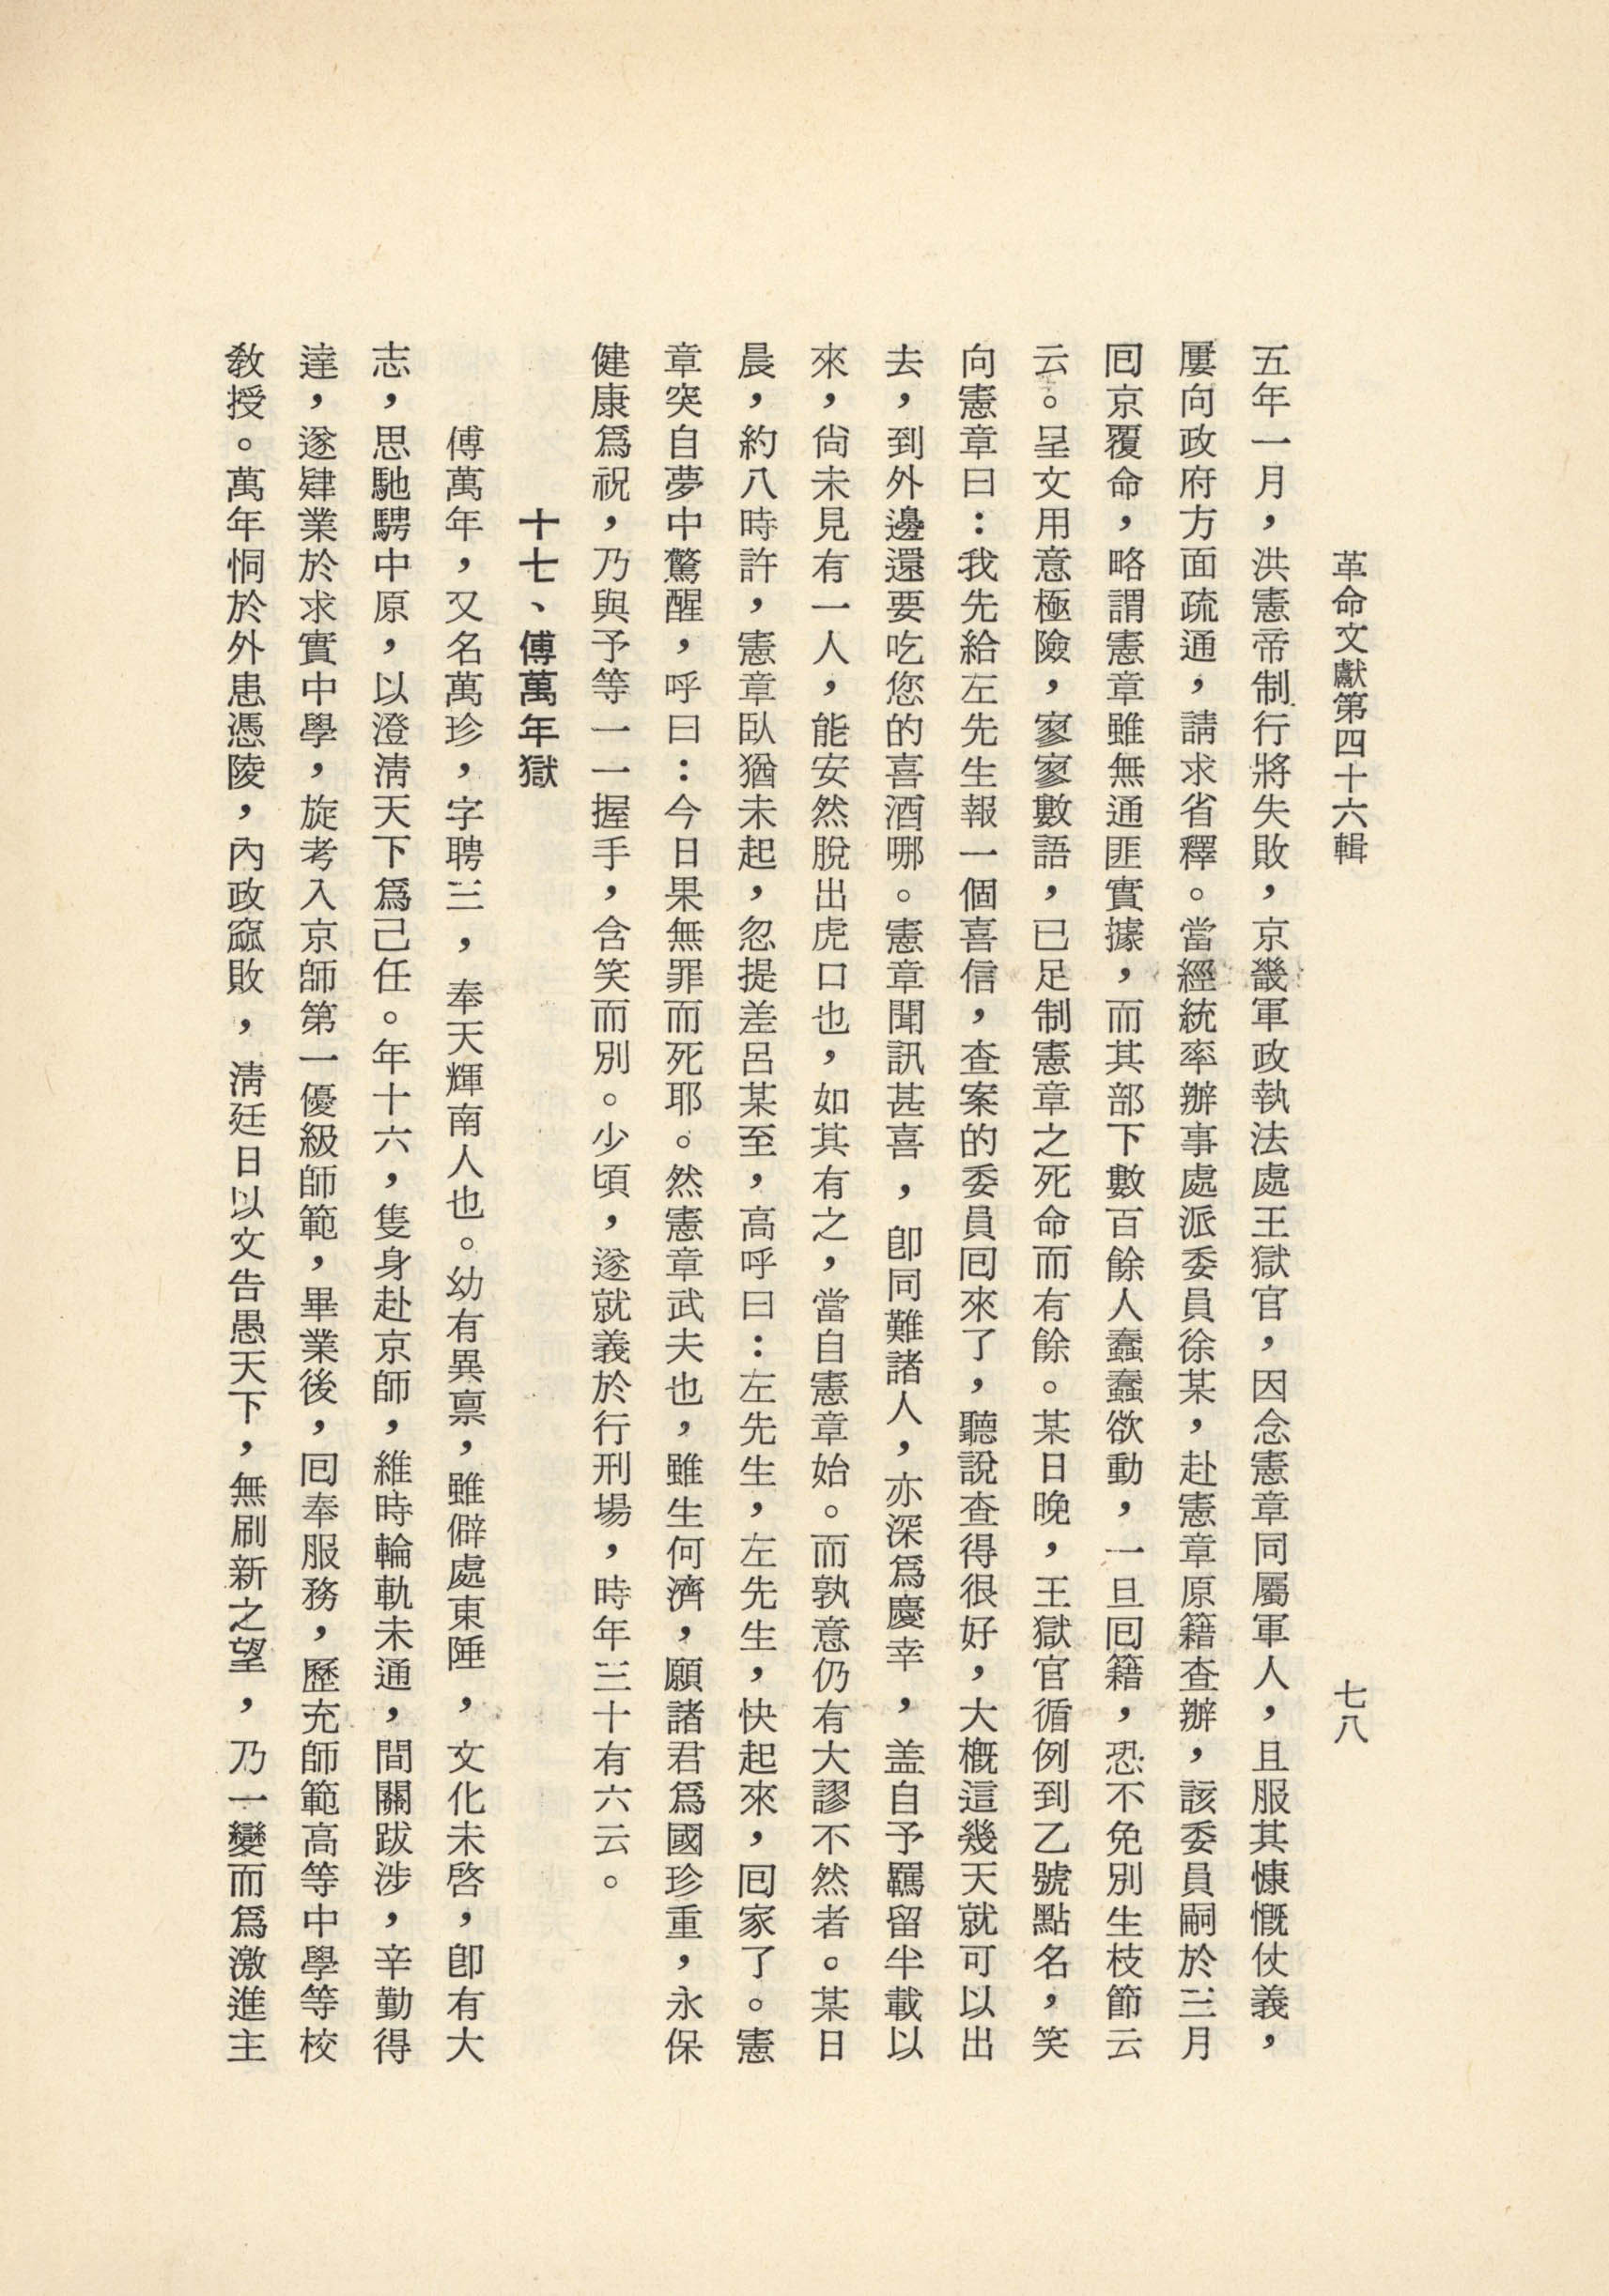 革命文獻第四十六輯
七八
五年一月，洪憲帝制行將失敗，京畿軍政執法處王獄官，因念憲章同屬軍人，且服其慷慨仗義，
屢向政府方面疏通，請求省釋。當經統率辦事處派委員徐某，赴憲章原籍查辦，該委員嗣於三月
囘京覆命，略謂憲章雖無通匪實據，而其部下數百餘人蠢蠢欲動，一旦囘籍，恐不免別生枝節云
云。呈文用意極險，寥寥數語，已足制憲章之死命而有餘。某日晚，王獄官循例到乙號點名，笑
向憲章曰：我先給左先生報一個喜信，查案的委員囘來了，聽說查得很好，大概這幾天就可以出
去，到外邊還要吃您的喜酒哪。憲章聞訊甚喜，卽同難諸人，亦深爲慶幸，盖自予羈留半載以
來，尙未見有一人，能安然脫出虎口也，如其有之，當自憲章始。而孰意仍有大謬不然者。某日
晨，約八時許，憲章臥猶未起，忽提差呂某至，高呼曰：左先生，左先生，快起來，囘家了。憲
章突自夢中驚醒，呼曰：今日果無罪而死耶。然憲章武夫也，雖生何濟，願諸君爲國珍重，永保
健康爲祝，乃與予等一一握手，含笑而別。少頃，遂就義於行刑場，時年三十有六云。
十七、傅萬年獄
傅萬年，又名萬珍，字聘三，奉天輝南人也。幼有異禀，雖僻處東陲，文化未啓，卽有大
志，思馳騁中原，以澄淸天下爲己任。年十六，隻身赴京師，維時輪軌未通，間關跋涉，辛勤得
達，遂肄業於求實中學，旋考入京師第一優級師範，畢業後，囘奉服務，歷充師範高等中學等校
敎授。萬年恫於外患憑陵，內政窳敗，淸廷日以文告愚天下，無刷新之望，乃一變而爲激進主